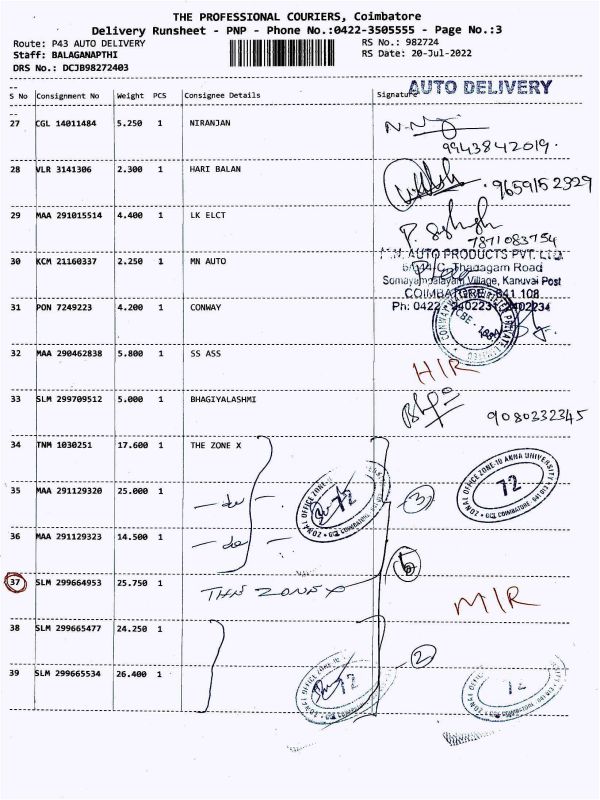 THE PROFESSIONAL COURIERS, Coimbatore
Delivery Runsheet - PNP - Phone No.:0422-3505555 - Page No.:3
Route: P43 AUTO DELIVERY RS No.: 982724
Staff: BALAGANAPTHI RS Date: 20-Jul-2022
DRS No.: DCJB98272403
AUTO DELIVERY
S No Consignment No Weight PCS Consignee Details Signature
27 CGL 14011484 5.250 1 NIRANJAN
9943842019.
28 VLR 3141306 2.300 1 HARI BALAN
9659152329
29 MAA 291015514 4.400 1 LK ELCT
7871083754
30 KCM 21160337 2.250 1 MN AUTO
AUTO PRODUCTS PVT. LTD.
Thadagam Road
Somayampalayam Village, Kanuvai Post
COIMBATORE 641 108
31 PON 7249223 4.200 1 CONWAY
Ph: 0422
32 MAA 290462838 5.800 1 SS ASS
H/R
33 SLM 299709512 5.000 1 BHAGIYALASHMI
9080332345
34 TNM 1030251 17.600 1 THE ZONE X
ZONAL OFFICE ZONE-10 ANNA UNIVERSITY
72
35 MAA 291129320 25.000 1 -do-
72
3
36 MAA 291129323 14.500 1 -do-
37 SLM 299664953 25.750 1 THE ZONE X
M/R
38 SLM 299665477 24.250 1
2
39 SLM 299665534 26.400 1
72